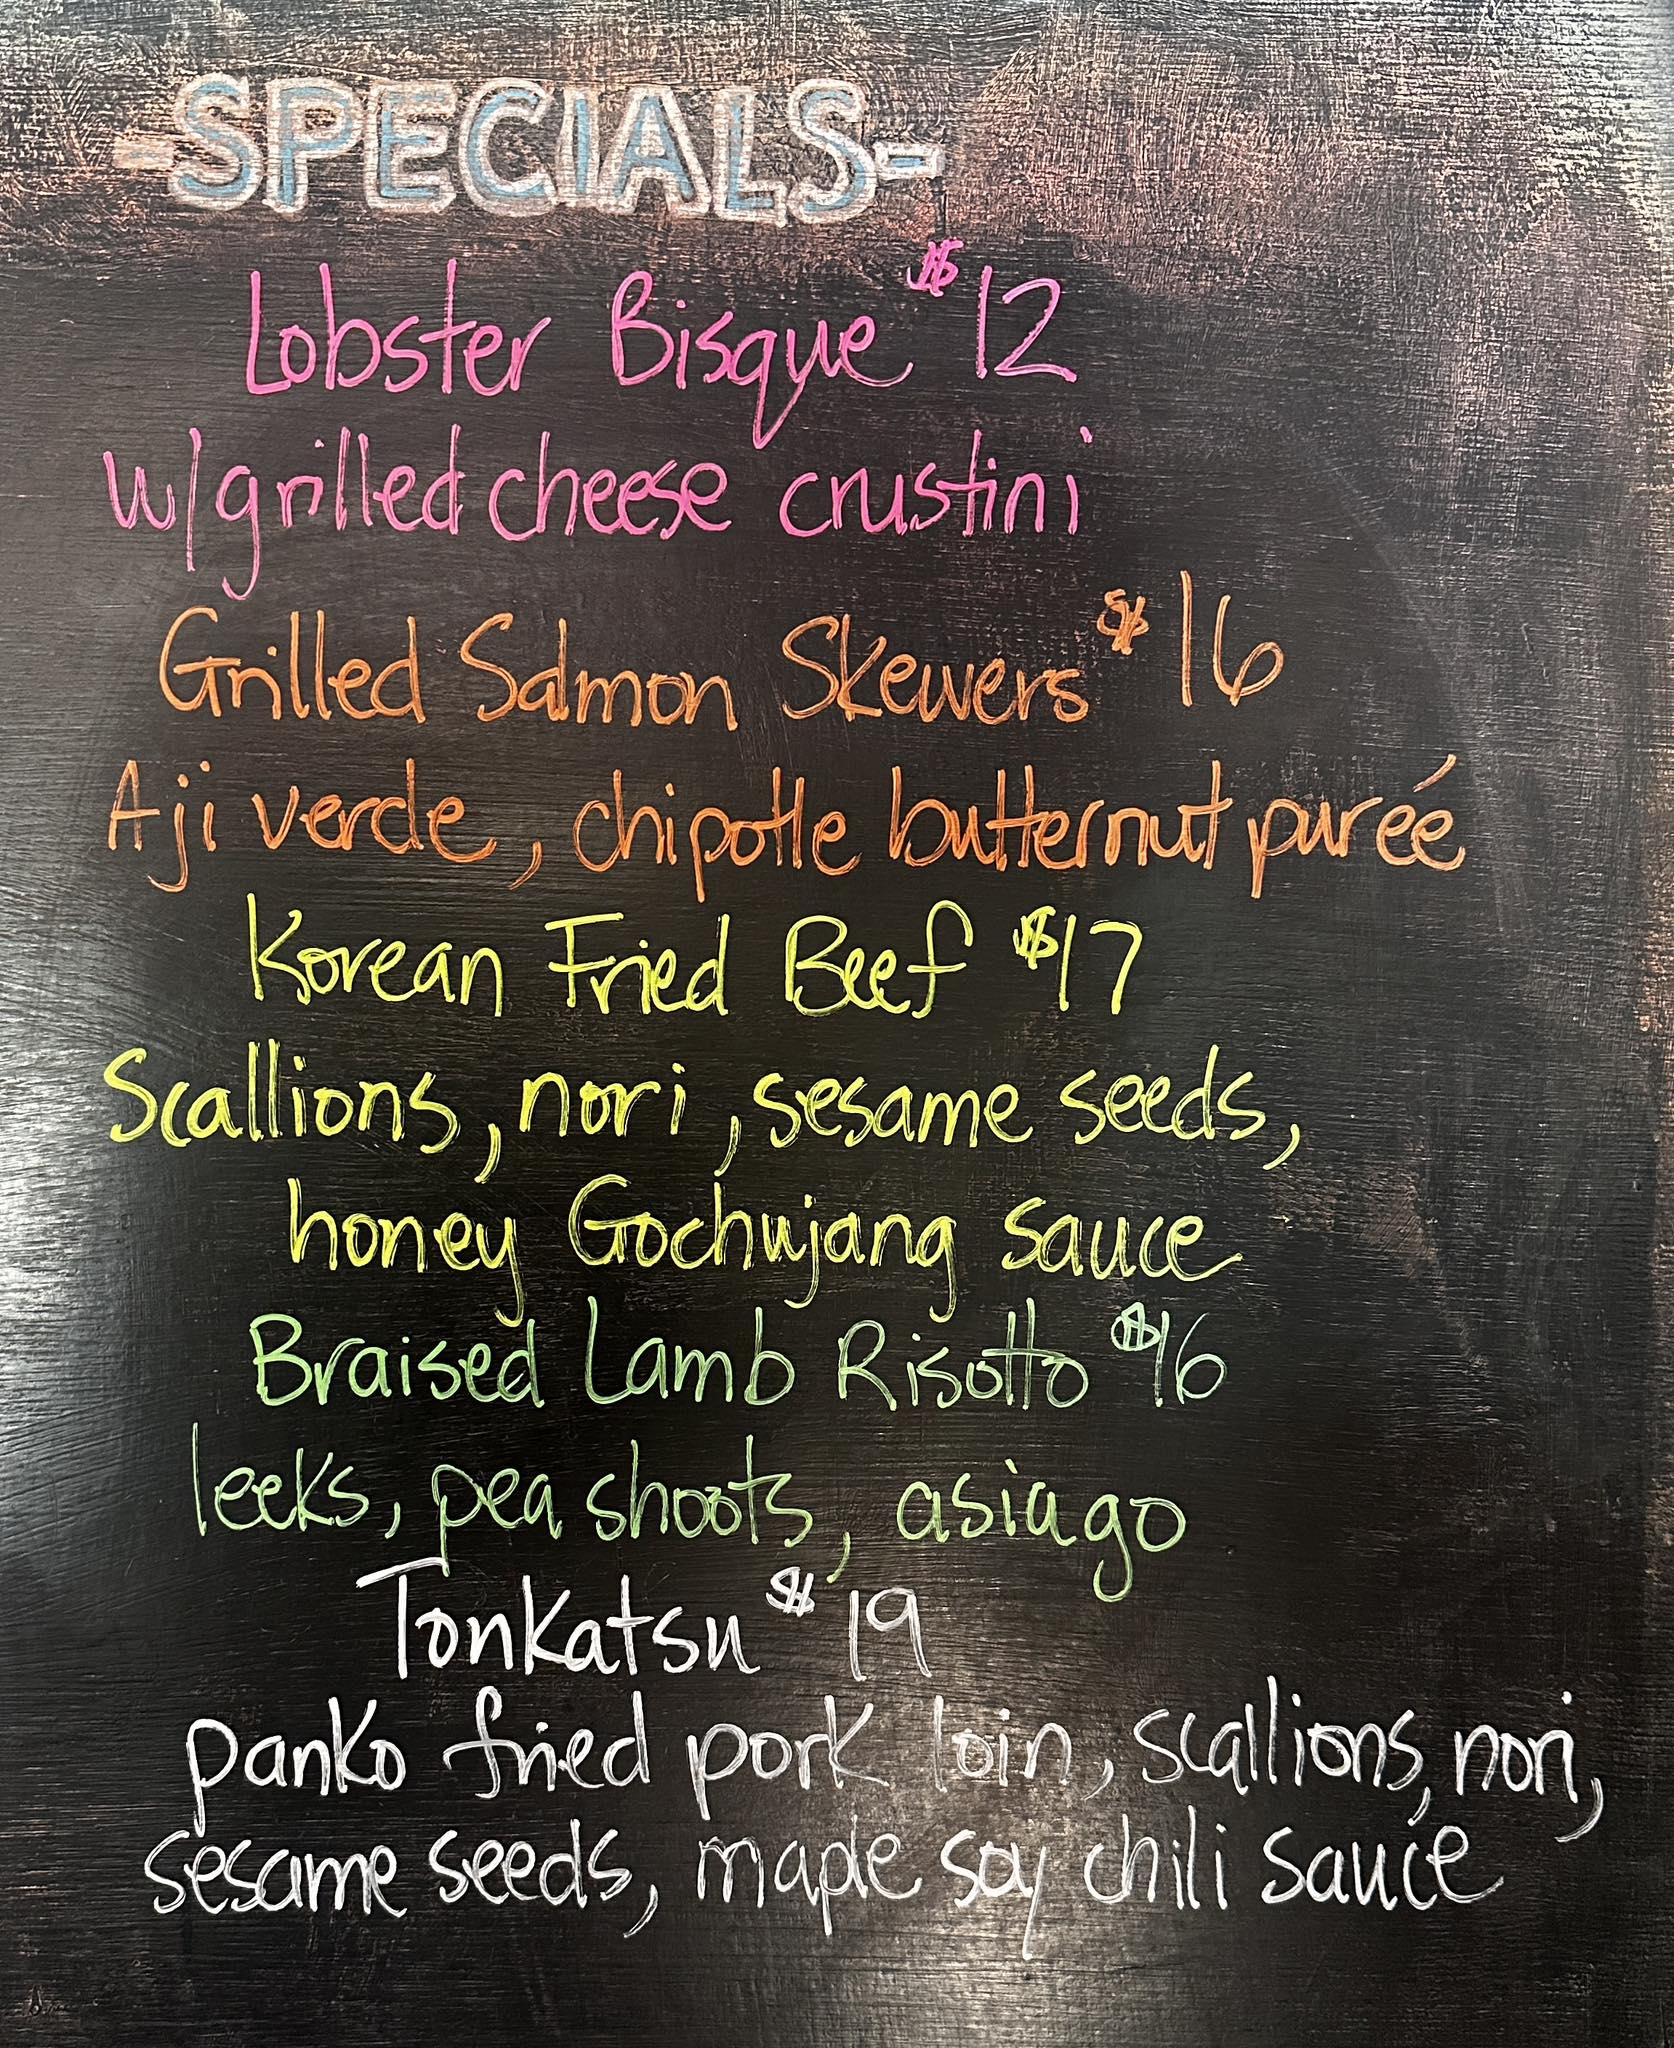 -SPECIALS-
Lobster Bisque $12
w/grilled cheese crustini
Grilled Salmon Skewers $16
Aji verde, chipotle butternut pureé
Korean Fried Beef $17
Scallions, nori, sesame seeds,
honey Gochujang sauce
Braised Lamb Risotto $16
leeks, pea shoots, asiago
Tonkatsu $19
panko fried pork loin, scallions, nori,
sesame seeds, maple soy chili sauce